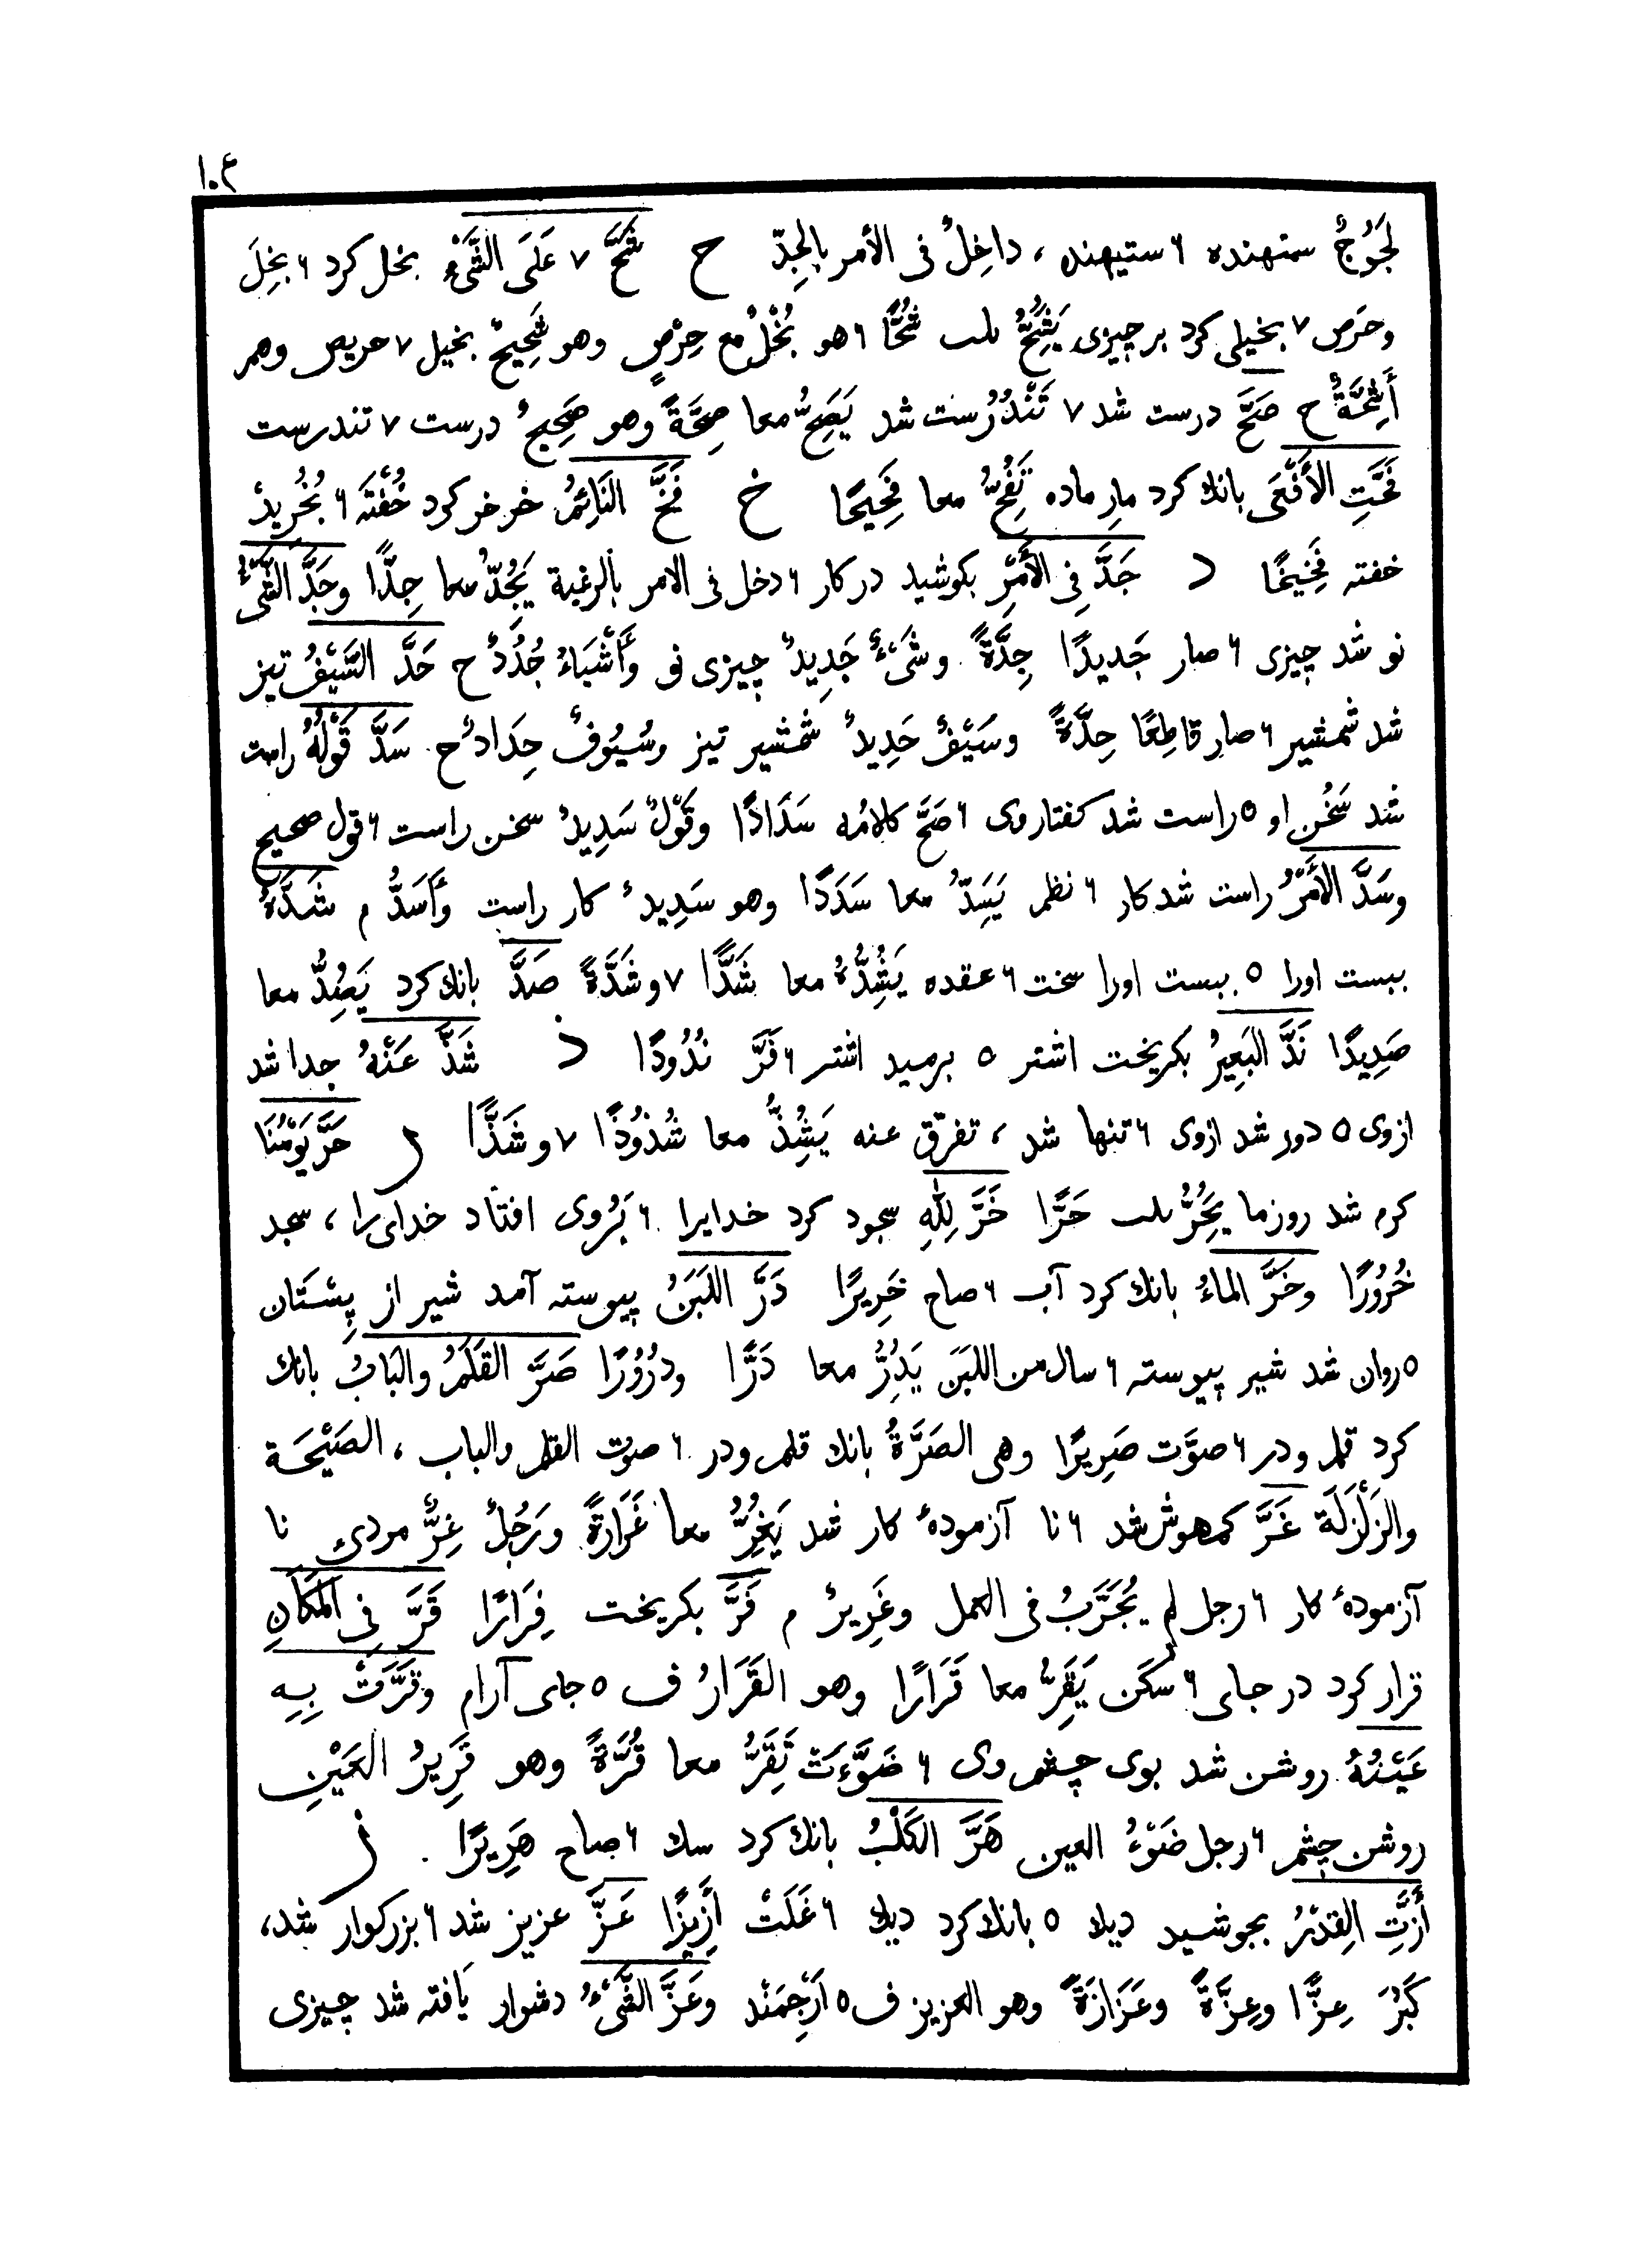 ١٠٤
لَجُوجٌ ستهنده ٦ ستیهنده ، داخِلٌ فی الأمر بالجِدّ ح شَحَّ ٧ عَلَی الشَّیْءِ بخل کرد ٦ بخِلَ
وحَرَص ٧ بخیلی کرد بر چیزی یَشُِحُّ ىلٮ شُحًّا ٦ هو بُخْلٌ مع حِرْصٍ وهو شَحِیحٌ بخیل ٧ حریص وهم
أَشِحَّةٌ ح صَحَّ درست شد ٧ تَنْدُرُست شد یَصِحُّ معا صِحَّةً وهو صَحِیحٌ درست ٧ تندرست
فَحَّتِ الأَفْعَی بانك کرد مار ماده تَفُِحُّ معا فَحِیحًا خ فَخَّ النَائِمُ خرخر کرد خُفْتَه ٦ بُخُرِیدْ
خفته فَخِیخًا د جَدَّ فِی الأَمْرِ بکوشید در کار ٦ دخل فی الامر بالرغبة یَجُِدُّ معا جِدًّا وجَدَّ الشَّیْءُ
نو شد چیزی ٦ صار جَدیدًا جِدَّةً وشَیْءٌ جَدِیدٌ چیزی نو وأَشْیَاءُ جُدُدٌ ح حَدَّ السَّیْفُ تیز
شد شمشیر ٦ صار قاطِعًا حِدَّةً وسَیْفٌ حَدِیدٌ شمشیر تیز وسُیُوفٌ حِدَادٌ ح سَدَّ قَوْلُهُ راست
شد سَخُن او ٥ راست شد کفتار وی ٦ صَحَّ کلامُه سَدَادًا وقَوْلٌ سَدِیدٌ سخن راست ٦ قول صحیح
وسَدَّ الأَمْرُ راست شد کار ٦ نظم یَسَِدُّ معا سَدَدًا وهو سَدِیدٌ کار راست وأَسَدُّ م شَدَّهُ
ببست اورا ٥ ببست اورا سخت ٦ عقده یَشُِدُّهُ معا شَدًّا ٧ وشَدَّةً صَدَّ بانك کرد یَصُِدُّ معا
صَدِیدًا نَدَّ البَعِیرُ بکریخت اشتر ٥ برمید اشتر ٦ فَرَّ نُدُودًا ذ شَذَّ عَنْهُ جدا شد
ازوی ٥ دور شد ازوی ٦ تنها شد ، تفرق عنه یَشُِذُّ معا شُذُوذًا ٧ وشَذًّا ر حَرَّ یَوْمُنَا
کرم شد روزما یَحَُِرُّ ىلٮ حَرًّا خَرَّ لِلّهِ سجود کرد خدایرا ٦ بَرُوی افتاد خدای را ، سجد
خُرُورًا وخَرَّ الماءُ بانك کرد آب ٦ صاح خَرِیرًا دَرَّ اللَبَنُ پیوسته آمد شیر از پِسْتَان
٥ روان شد شیر پیوسته ٦ سال من اللبَن یَدُِرُّ معا دَرًّا ودُرُورًا صَرَّ القَلَمُ والبَابُ بانك
کرد قلم ودر ٦ صوَّت صَرِیرًا وهی الصَرَّةُ بانك قلم ودر ٦ صوْت القلم والباب ، الصَیْحَة
والزَلْزَلَة غَرَّ کم هوش شد ٦ نا آزمودهٔ کار شد یَغُِرُّ معا غَرَارَةً ورَجُلٌ غِرٌّ مردی نا
آزمودهٔ کار ٦ رجل لم یُجَرَّبْ فی العمل وغَرِیرٌ م فَرَّ بکریخت فِرَارًا قَرَّ فِی المَکَانِ
قرار کرد در جای ٦ سکَن یَقَِرُّ معا قَرَارًا وهو القَرَارُ ف ٥ جای آرام وقَرَّتْ بِهِ
عَیْنُهُ روشن شد بوی چشم وی ٦ ضَوَّءَتْ تَقَِرُّ معا قُرَّةً وهو قَرِیرُ العَیْنِ
روشن چشم ٦ رجل ضَوْءُ العین هَرَّ الکَلْبُ بانك کرد سك ٦ صاح هَرِیرًا . ز
أَزَّتِ القِدْرُ بجوشید دیك ٥ بانك کرد دیك ٦ غَلَتْ أَزِیزًا عَزَّ عزیز شد ٦ بزرکوار شد ،
کَبُرَ عِزًّا وعِزَّةً وعَزَازَةً وهو العزیز ف ٥ أَرْجِمَنْد وعَزَّ الشَّیْءُ دشوار یَافته شد چیزی